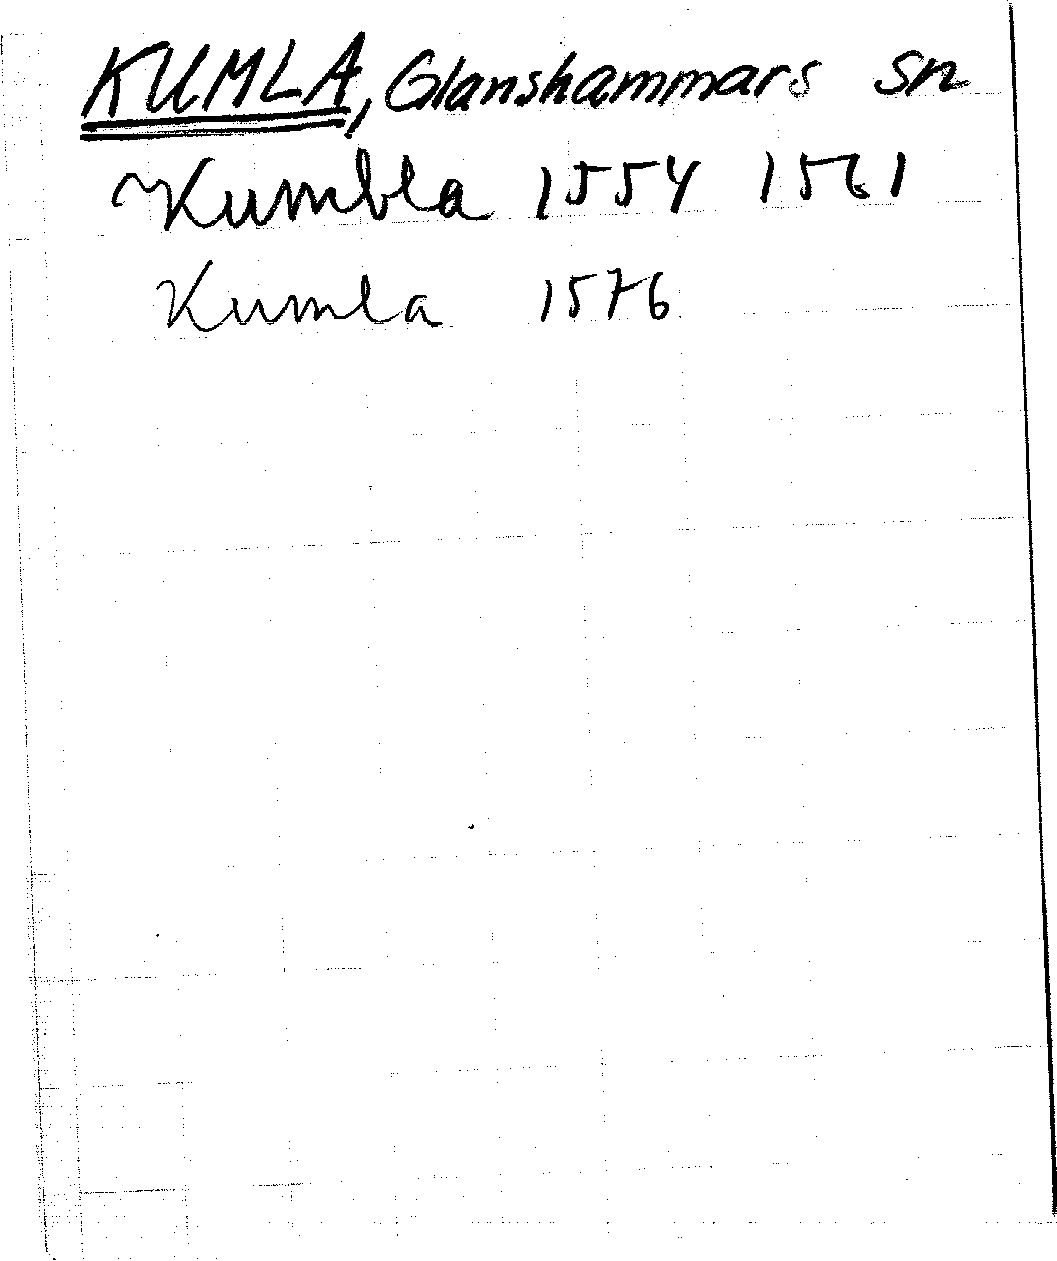 KUMLA, Glanshammars sn
Kumbla 1554 1561
Kumla 1576